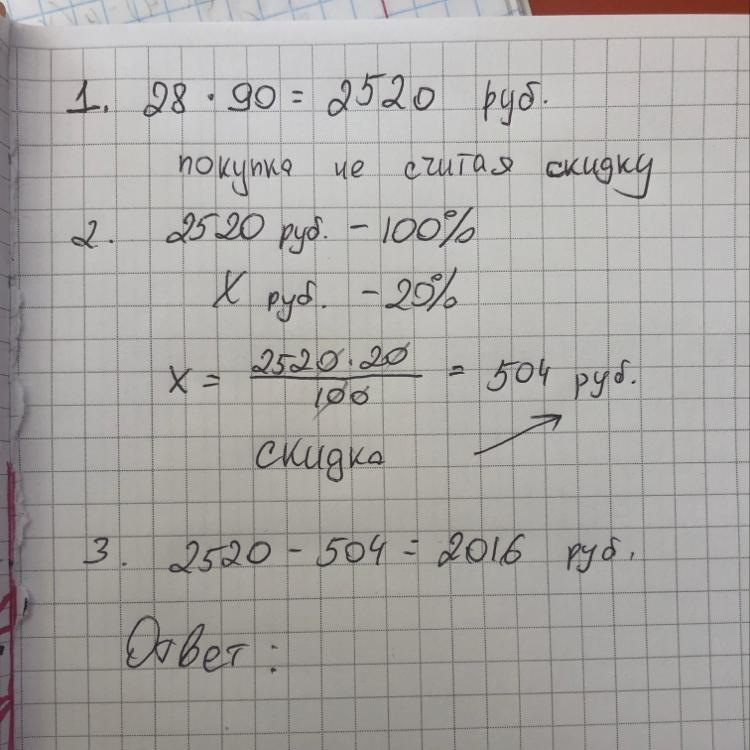 1. 28 · 90 = 2520 руб.
покупка не считая скидку
2. 2520 руб. - 100%
X руб. - 20%
X = 2520 · 20 / 100 = 504 руб.
скидка
3. 2520 - 504 = 2016 руб.
Ответ: